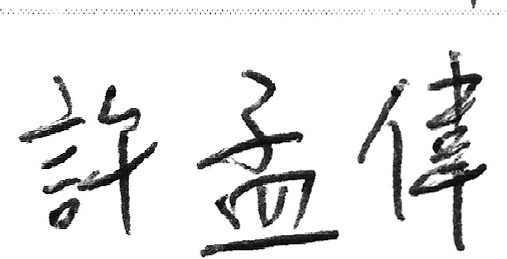 許孟偉